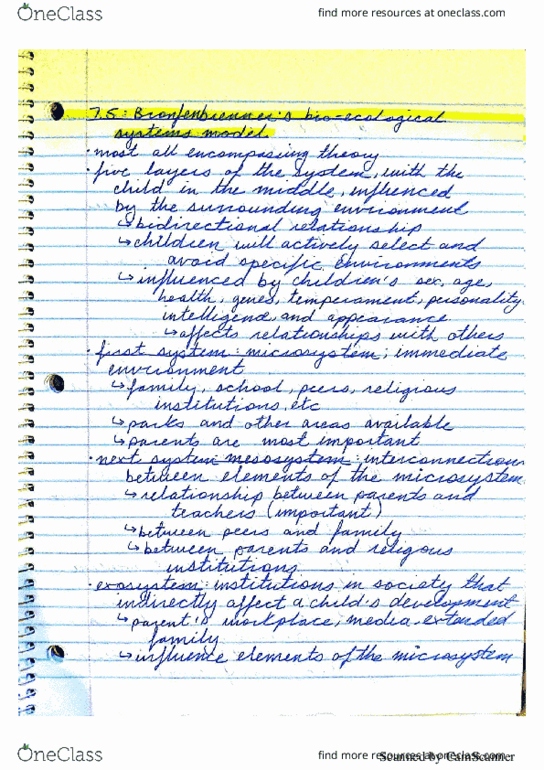 OneClass
find more resources at oneclass.com
7.5: Bronfenbrenner's bio-ecological
systems model
· most all encompassing theory
· five layers of the system, with the
child in the middle, influenced
by the surrounding environment
↳ bidirectional relationship
↳ children will actively select and
avoid specific environments
↳ influenced by children's sex, age,
health, genes, temperament, personality,
intelligence and appearance
↳ affects relationships with others
· first system: microsystem; immediate
environment
↳ family, school, peers, religious
institutions, etc
↳ parks and other areas available
↳ parents are most important
· next system mesosystem: interconnection
between elements of the microsystem
↳ relationship between parents and
teachers (important)
↳ between peers and family
↳ between parents and religious
institutions
· exosystem: institutions in society that
indirectly affect a child's development
↳ parent's workplace, media, extended
family
↳ influence elements of the microsystem
OneClass
find more resources at oneclass.com
Scanned by CamScanner